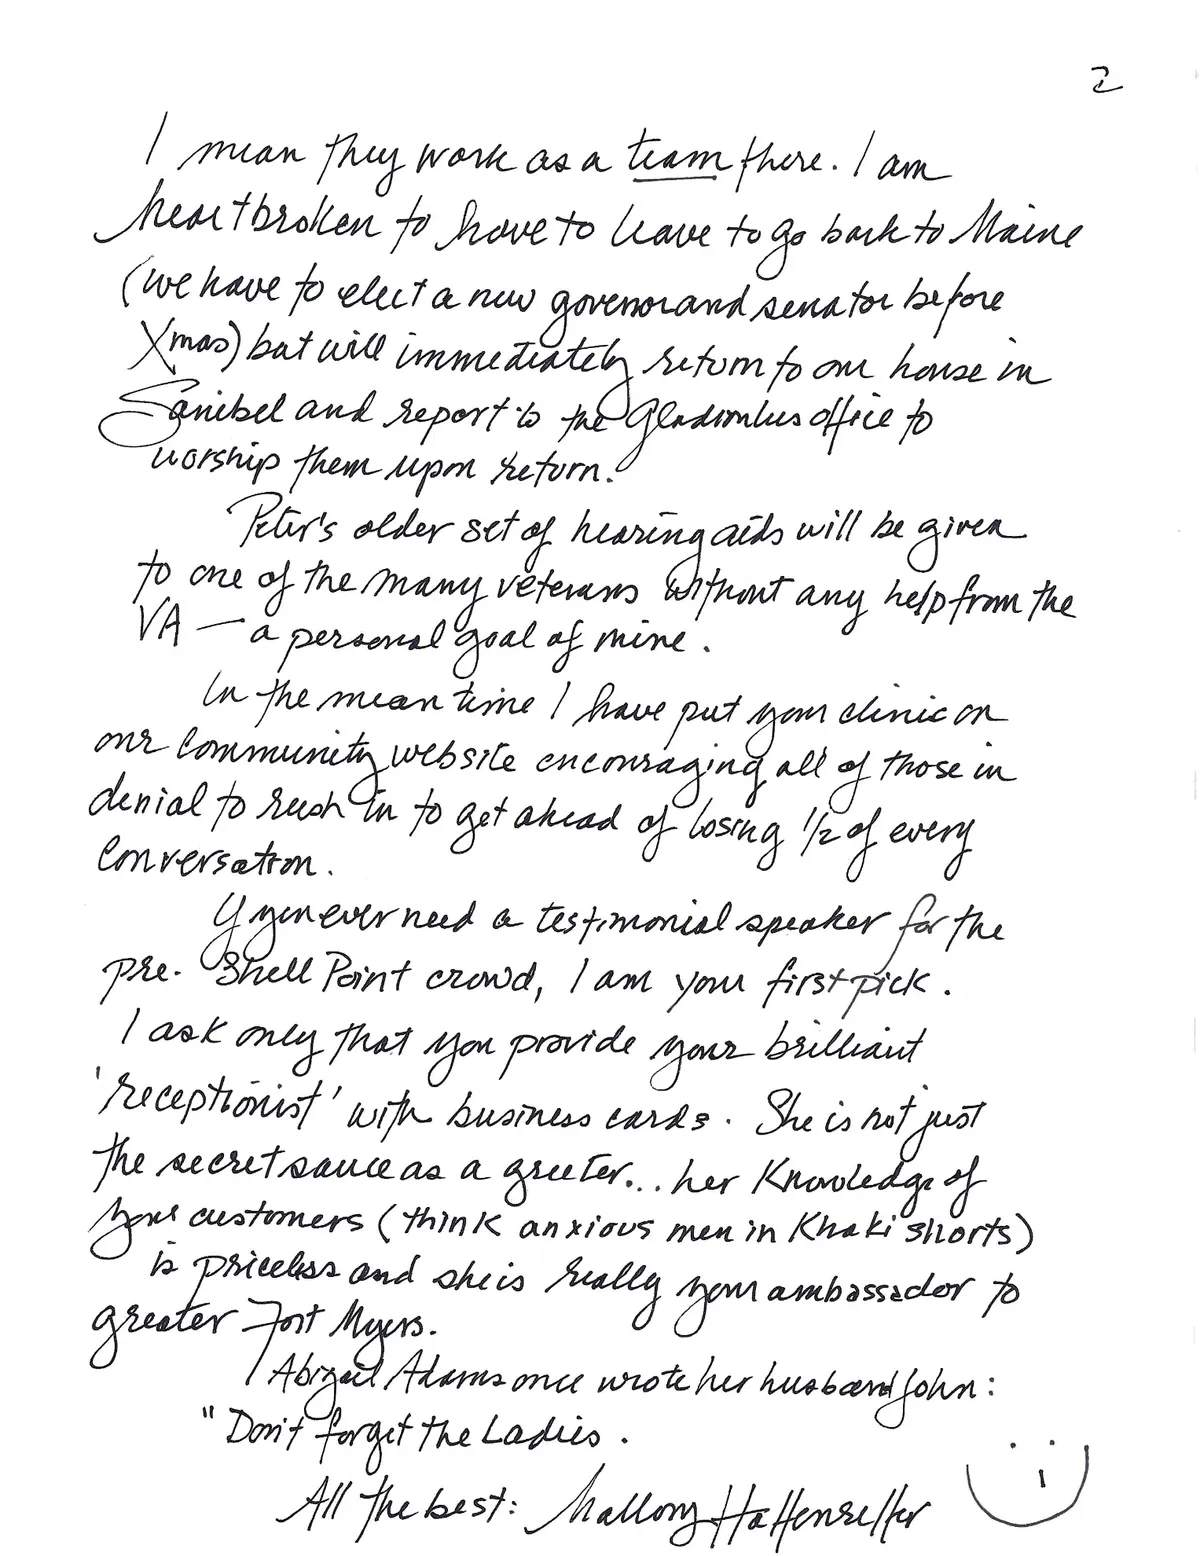 2
I mean they work as a team there. I am
heartbroken to have to leave to go back to Maine
(we have to elect a new govenor and senator before
Xmas) but will immediately return to our house in
Sanibel and report to the Gladiolus office to
worship them upon return.
Peter's older set of hearing aids will be given
to one of the many veterans without any help from the
VA — a personal goal of mine.
In the mean time I have put your clinic on
our community website encouraging all of those in
denial to rush in to get ahead of losing 1/2 of every
conversation.
If you ever need a testimonial speaker for the
pre- Shell Point crowd, I am your first pick.
I ask only that you provide your brilliant
'receptionist' with business cards. She is not just
the secret sauce as a greeter... her knowledge of
your customers (think anxious men in Khaki shorts)
is priceless and she is really your ambassador to
greater Fort Myers.
Abigail Adams once wrote her husband John:
"Don't forget the Ladies.
All the best: Mallory Haffenreffer